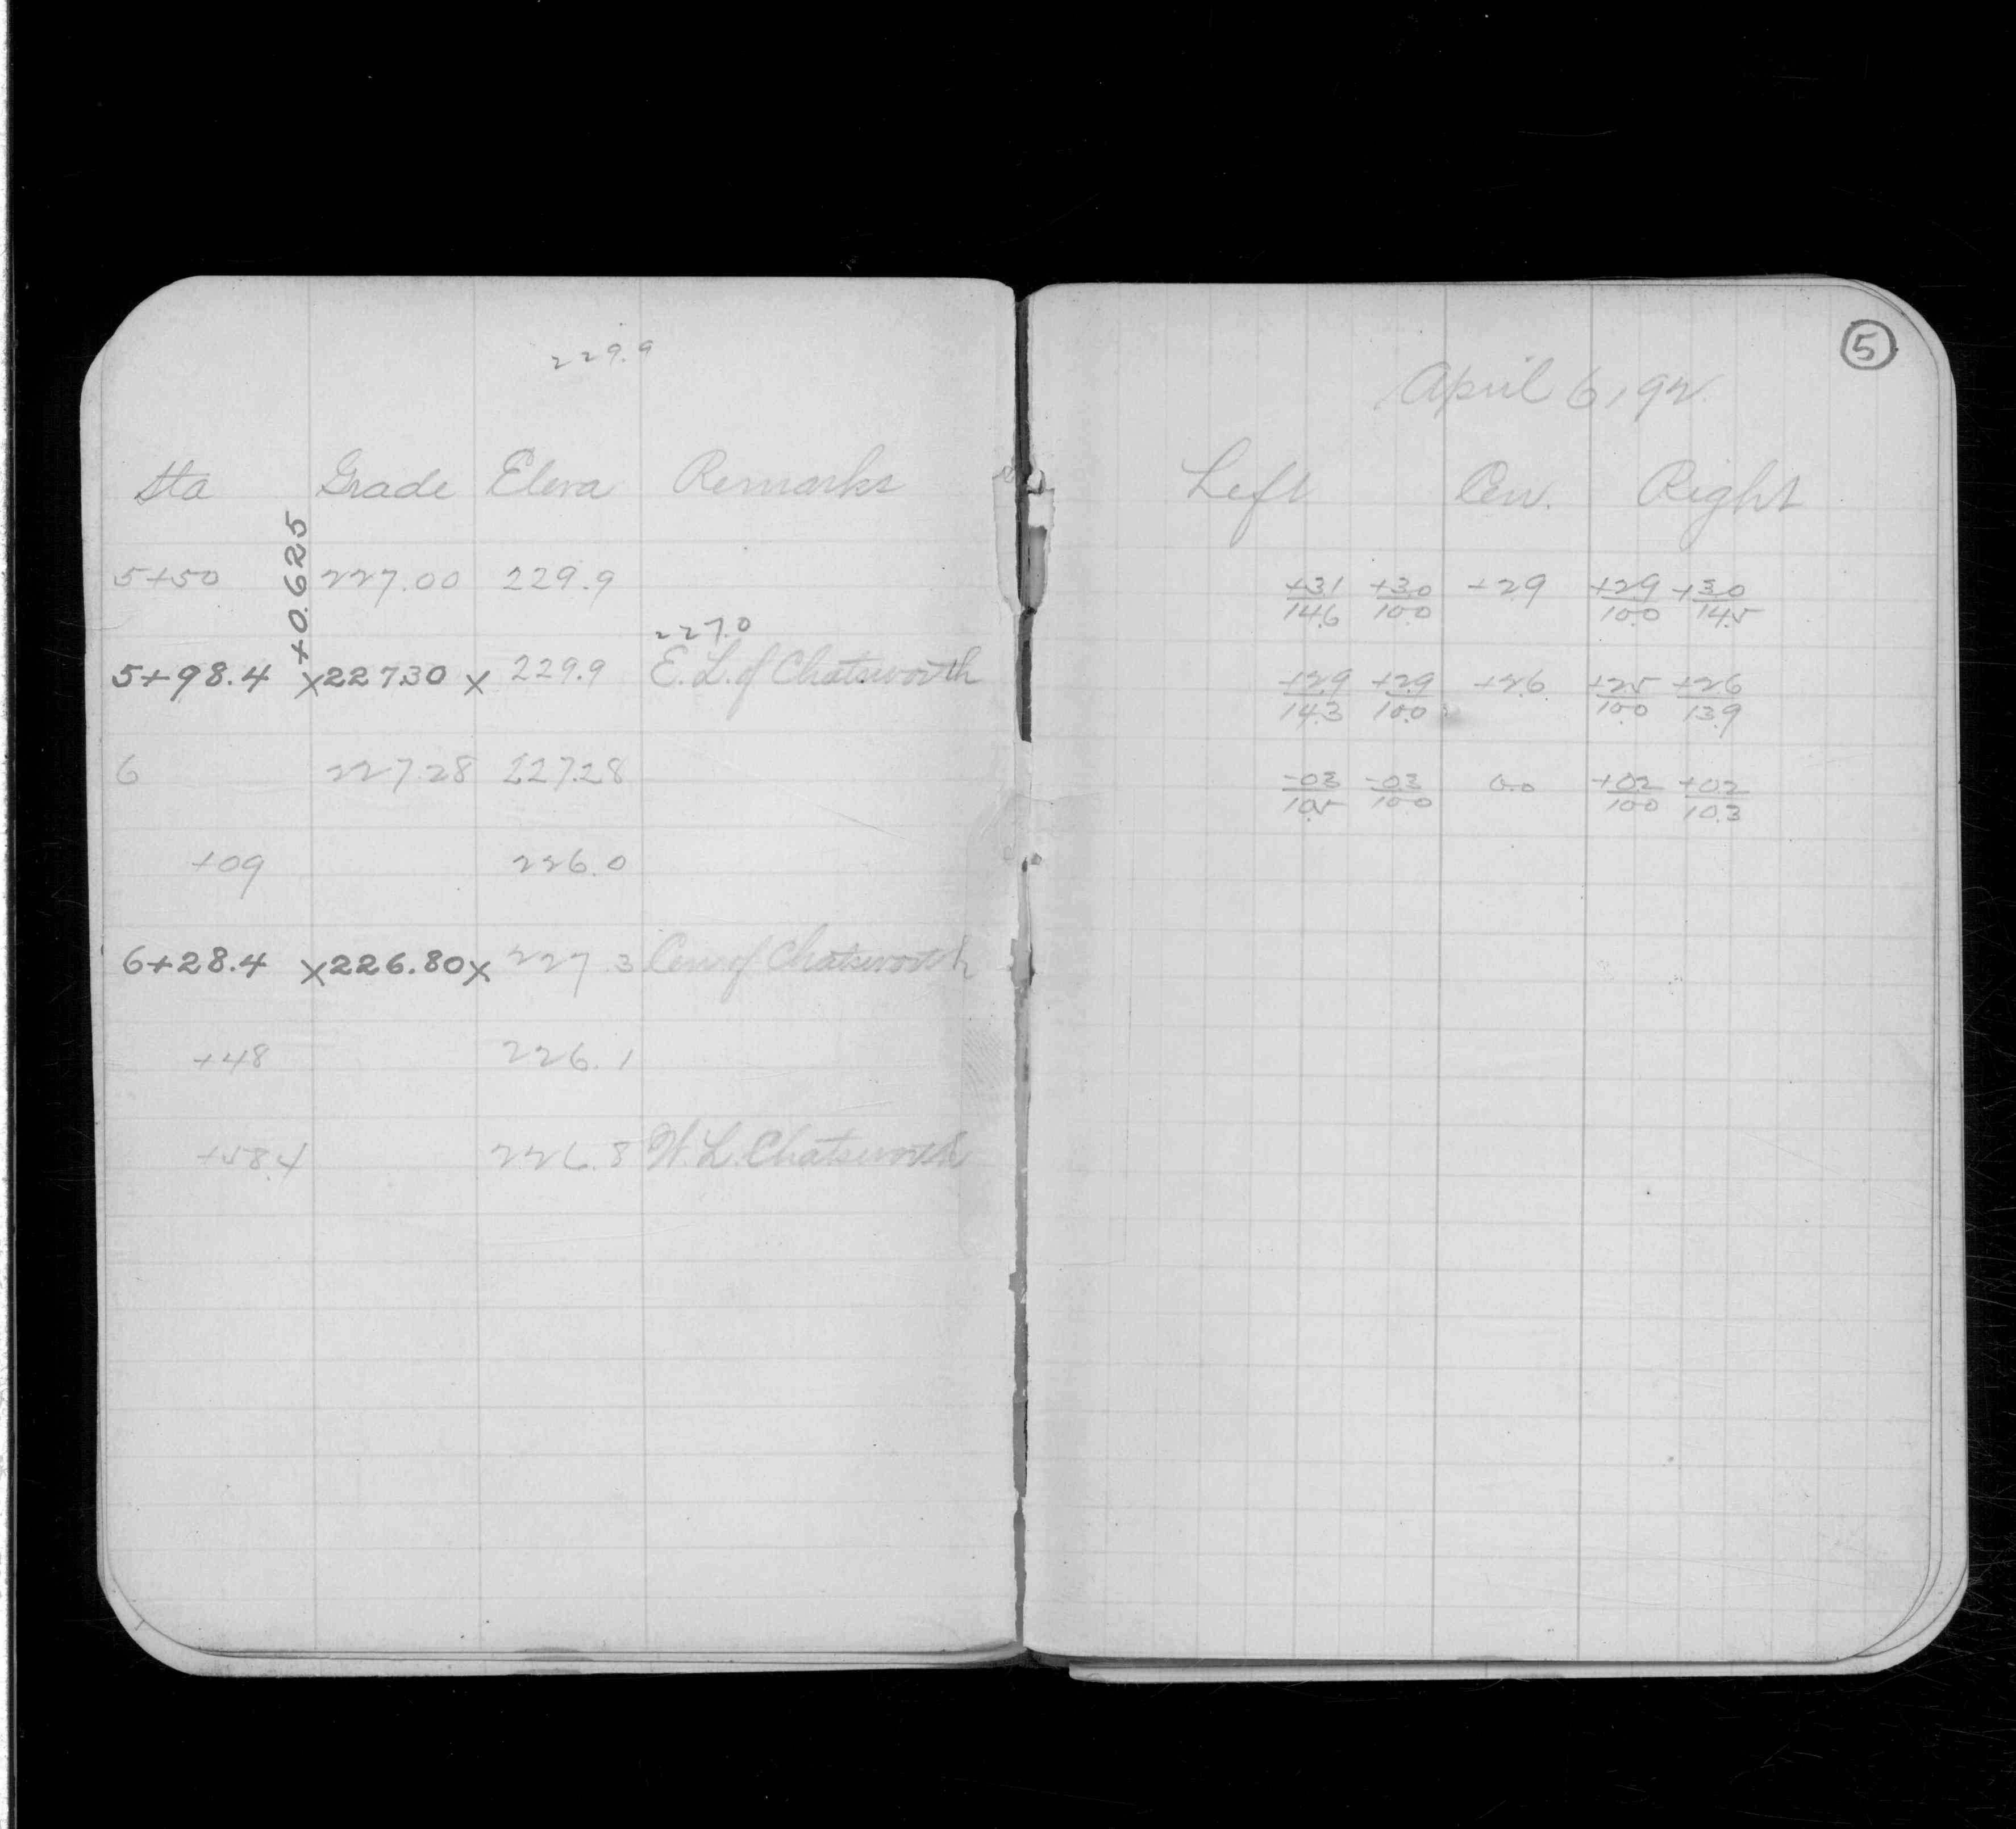 229.9
Sta Grade Eleva Remarks
+0.625
5+50 227.00 229.9
227.0
5+98.4 x 227.30 x 229.9 E. L. of Chatsworth
6 227.28 227.28
+09 226.0
6+28.4 x 226.80 x 227.3 Cen of Chatsworth
+48 226.1
+58.4 226.8 W. L. Chatsworth
5
April 6, 92.
Left Cen. Right
+3.1 +3.0 +2.9 +2.9 +3.0
14.6 10.0 10.0 14.5
+2.9 +2.9 +2.6 +2.5 +2.6
14.3 10.0 10.0 13.9
-0.3 -0.3 0.0 +0.2 +0.2
10.5 10.0 10.0 10.3